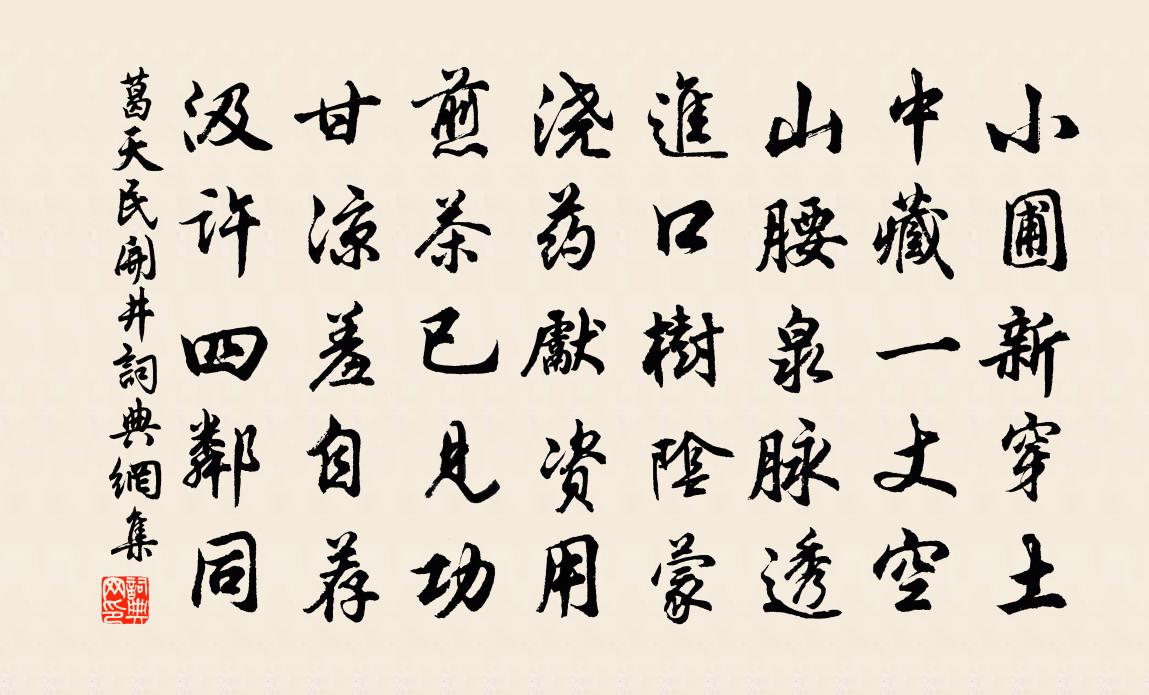 小圃新穿土
中藏一丈空
山腰泉脉透
進口樹陰蒙
浇药獻资用
煎茶已見功
甘凉羞自荐
汲许四鄰同
葛天民開井詞典網集
詞典網印